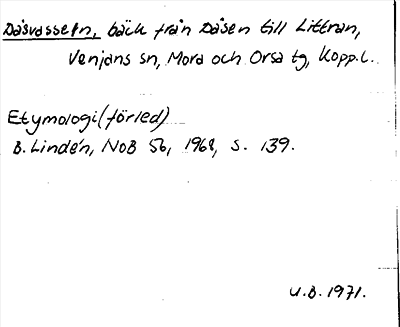 Dåsvasseln, bäck från Dåsen till Littran,
Venjans sn, Mora och Orsa tg, Kopp.l.
Etymologi (förled)
B. Lindén, NoB 56, 1968, s. 139.
U.B. 1971.